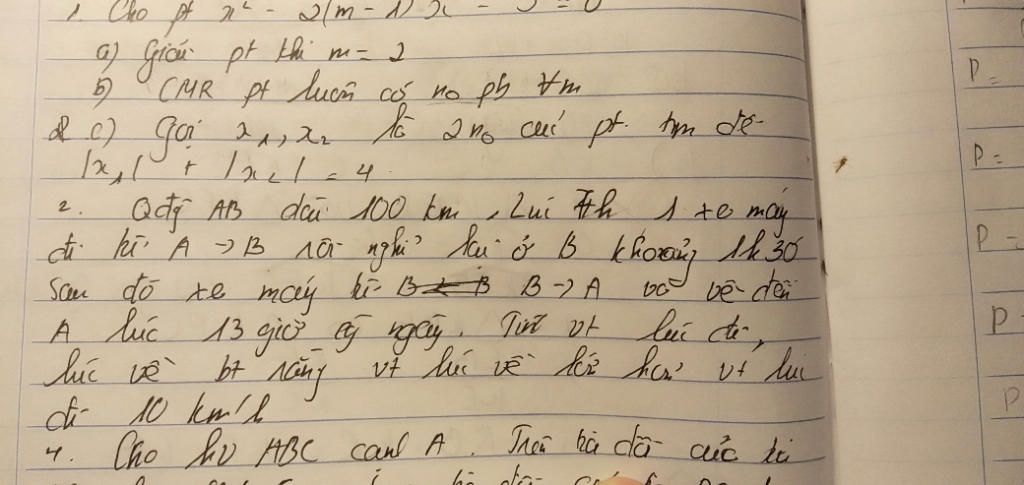 1. Cho pt x² - 2(m - 1)x - 3 = 0
a) Giải pt khi m = 2
b) CMR pt luôn có no pb ∀m
c) Gọi x₁, x₂ là 2 no của pt. tìm để
|x₁| + |x₂| = 4
2. Qđg AB dài 100 km. Lúc 7h 1 xe máy
đi từ A → B rồi nghỉ lại ở B khoảng 1h30
Sau đó xe máy từ B → A và về đến
A lúc 13 giờ cg ngày. Tính vt lúc đi,
lúc về bt rằng vt lúc về lớn hơn vt lúc
đi 10 km/h
4. Cho ABC cân A. Trên tia đối của tia
P =
P =
P =
P
P